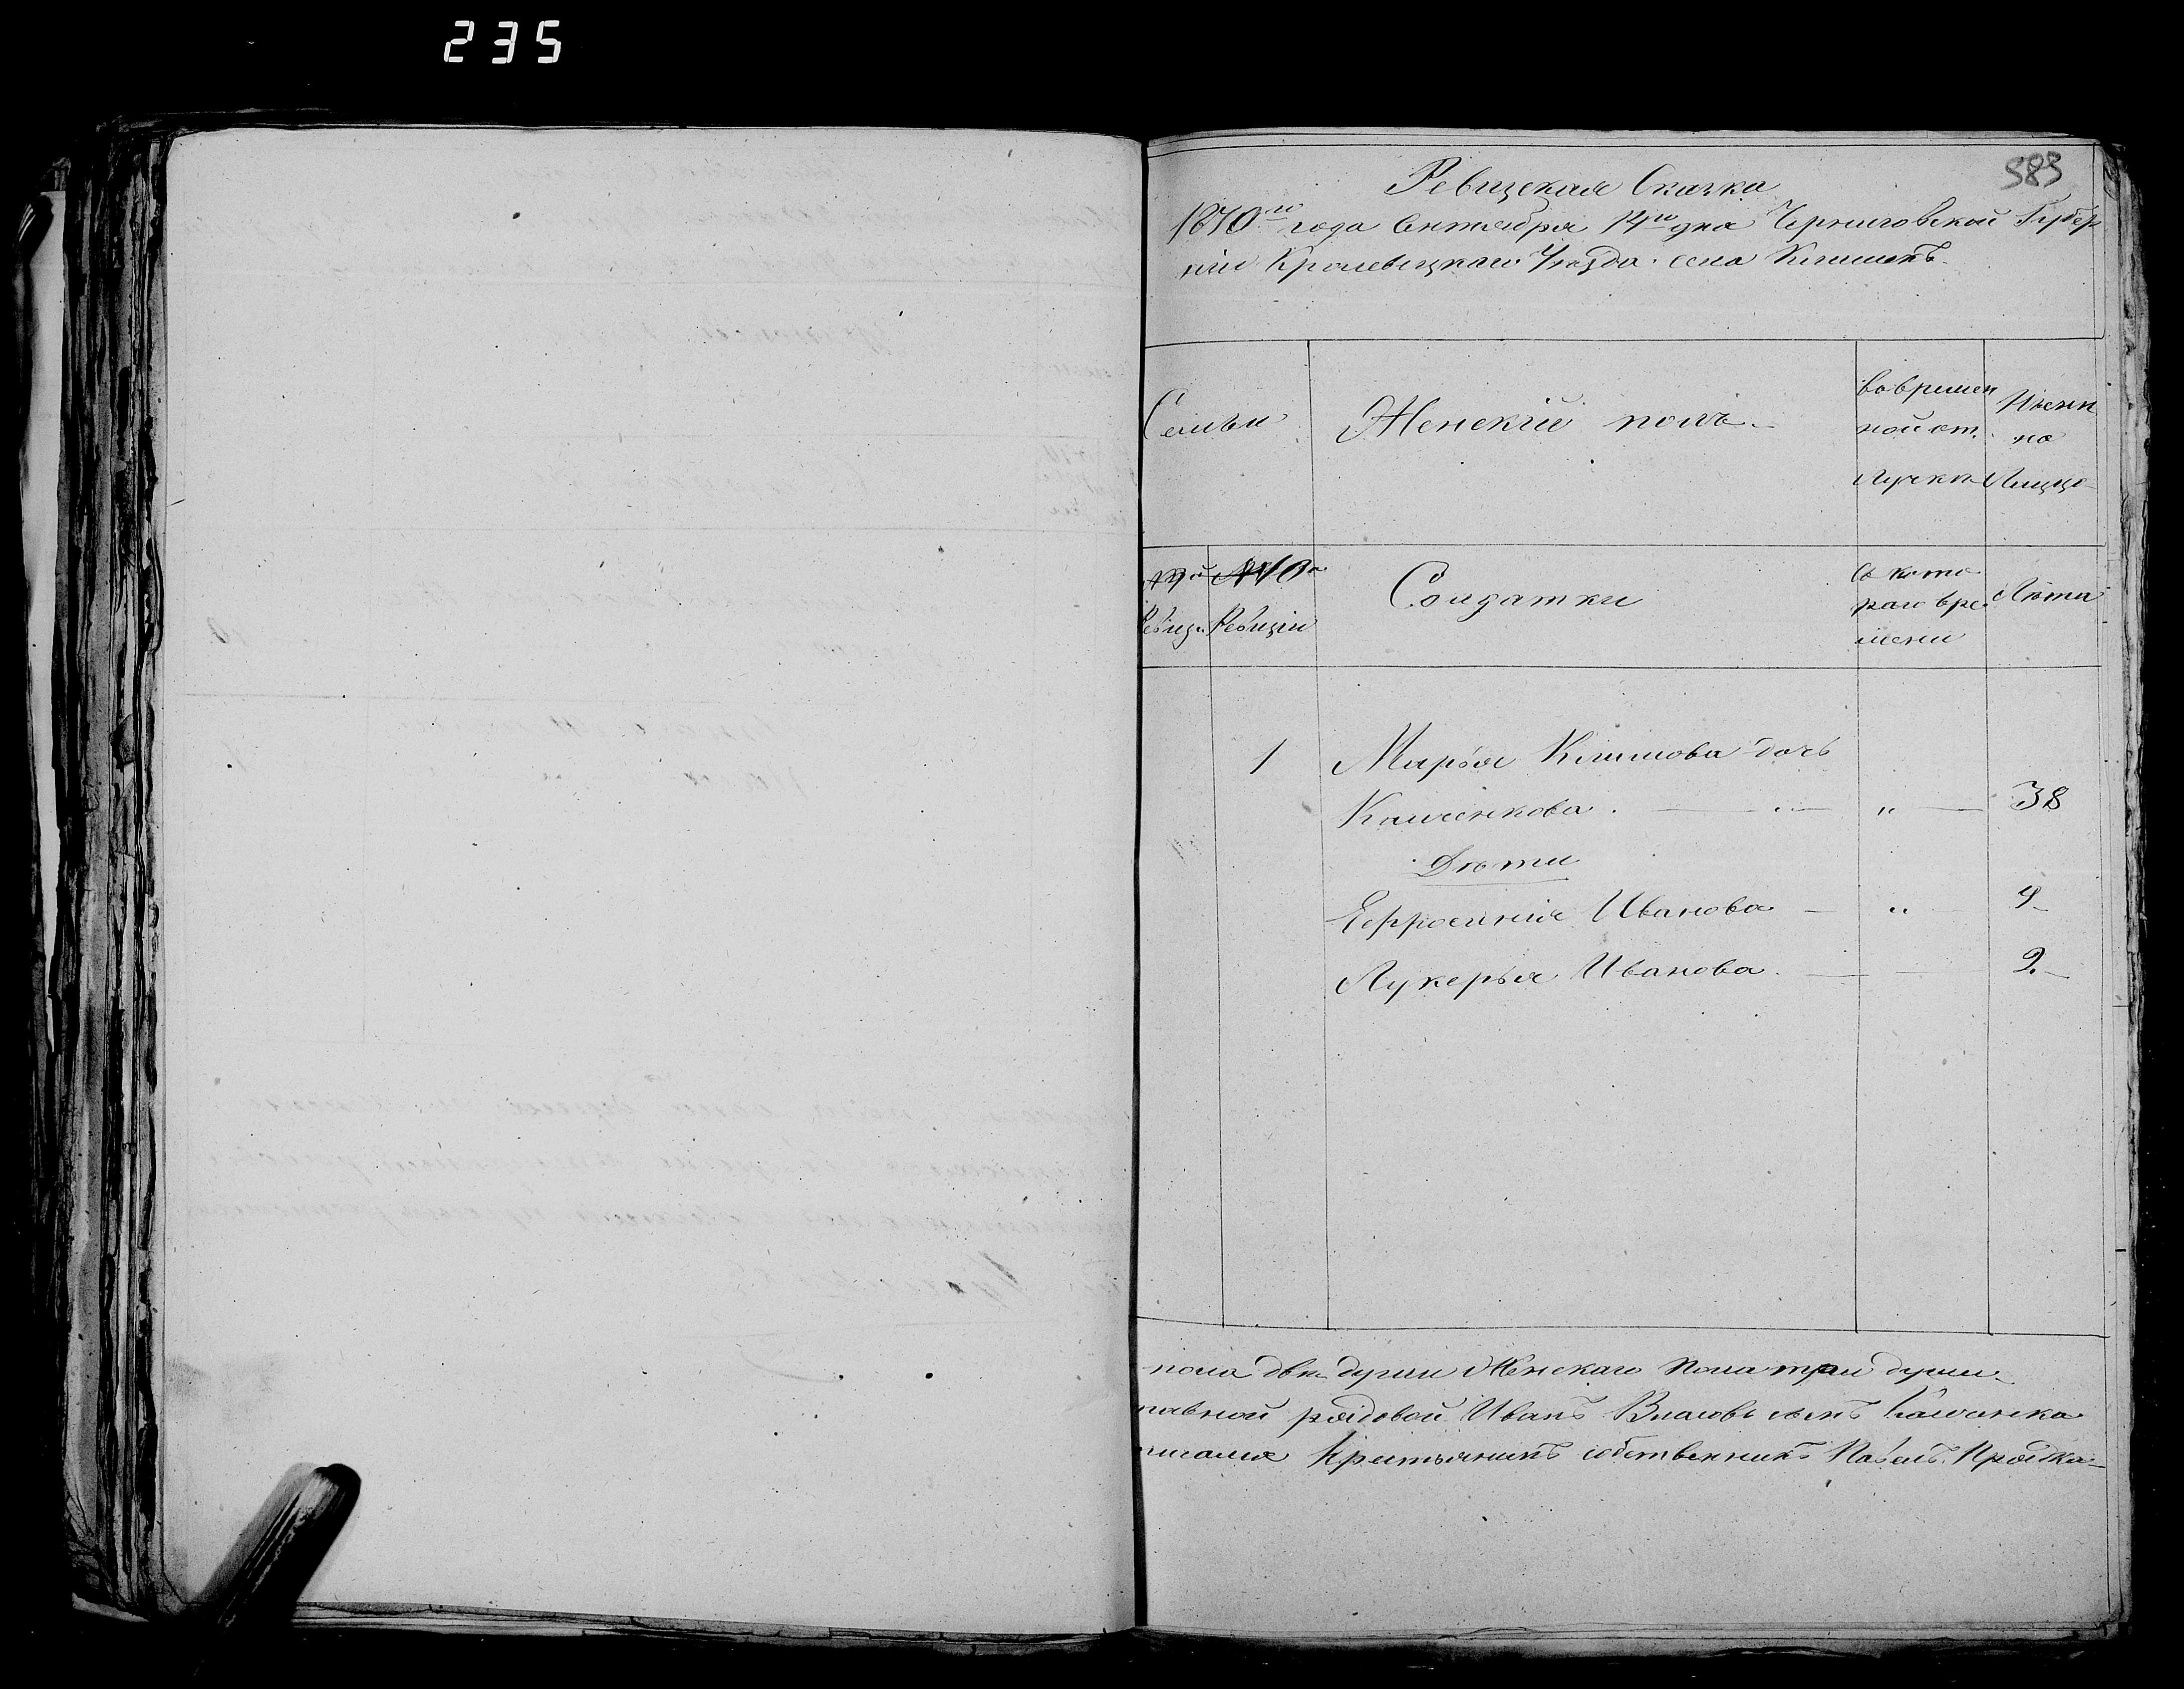 235
583
Ревизская Сказка
1870го года Сентября 14го дня Черниговской Губер
нии Кролевецкаго Уѣзда села Клишекъ
Семьи
Женскій полъ
во времен
ной от
лучкѣ
Нѣлицо
№9й Ревиз.
№10й Ревизіи
Солдатки
Съ кото
раго вре
мени
Лѣта
1 Марья Климова дочь
Калченкова . — „ — 38
Дѣти
Евфросинія Иванова — „ 9
Лукерья Иванова — 2.
пола двѣ души Женскаго пола три души
рядовой Иванъ Власовъ сынъ
Крестьянинъ собственникъ Павелъ Прядка